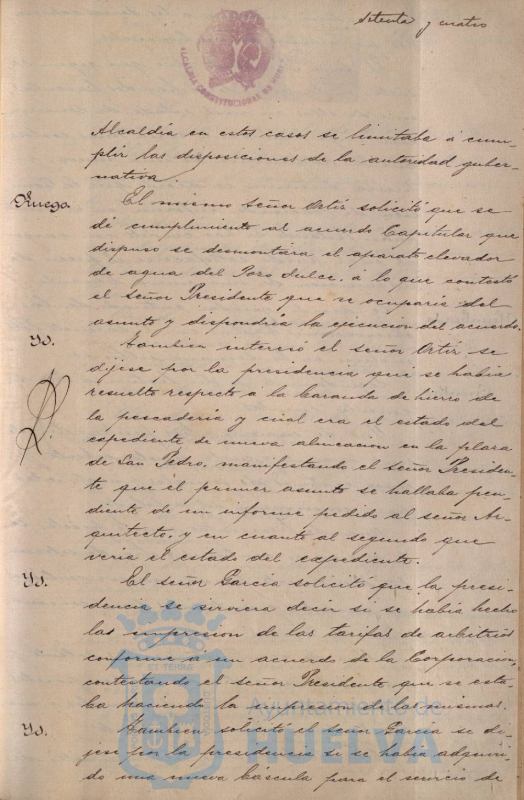 Setenta y cuatro
ALCALDIA CONSTITUCIONAL DE
Alcaldía en estos casos se limitaba á cum-
plir las disposiciones de la autoridad guber-
nativa.
Ruego.
El mismo señor Ortiz solicitó que se
dé cumplimiento al acuerdo Capitular que
dispuso se desmontára el aparato elevador
de agua del Pozo dulce, á lo que contestó
el señor Presidente que se ocuparia del
asunto y dispondria la ejecucion del acuerdo.
Yd.
Tambien interesó el señor Ortiz se
dijese por la presidencia qué se habia
resuelto respecto á la baranda de hierro de
la pescaderia y cual era el estado del
expediente de nueva alineacion en la plaza
de San Pedro, manifestando el señor Presiden-
te que el primer asunto se hallaba pen-
diente de un informe pedido al señor Ar-
quitecto, y en cuanto al segundo que
veria el estado del expediente.
Yd.
El señor García solicitó que la presi-
dencia se sirviera decir si se habia hecho
las impresion de las tarifas de arbitrios
conforme á un acuerdo de la Corporacion,
contestando el señor Presidente que se esta-
ba haciendo la impresion de las mismas.
Yd.
Tambien solicitó el señor García se di-
jese por la presidencia si se habia adquiri-
do una nueva báscula para el servicio de
Ayuntamiento de
HUELVA